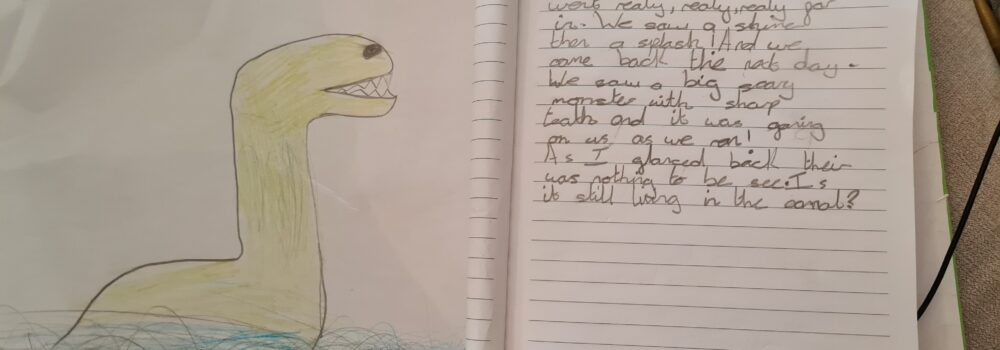 went realy, realy, realy far
in. We saw a shine
then a splash! And we
came back the nat day.
We saw a big scary
monster with sharp
teath and it was gaining
on us as we ran!
As I glanced back their
was nothing to be see. Is
it still living in the camal?